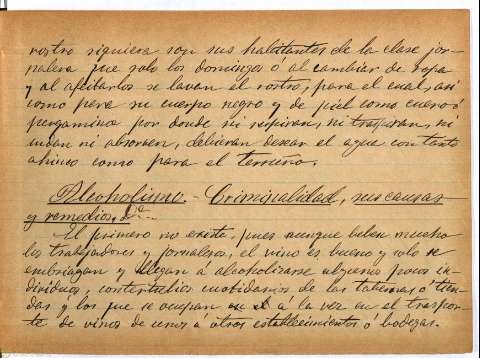 rostro siquiera son sus habitantes de la clase jor-
nalera que solo los domingos ó al cambiar de ropa
y al afeitarlos se lavan el rostro, para el cual, así
como para su cuerpo negro y de piel como cuero ó
pergamino por donde ni respiran, ni traspiran, ni
sudan ni absorven, debieran desear el agua con tanto
ahinco como para el terruño.
Alcoholismo.- Criminalidad, sus causas
y remedios, &ª.-
El primero no existe, pues aunque beben mucho
los trabajadores y jornaleros, el vino es bueno y solo se
embriagan y llegan a alcoholizarse algunos pocos in-
dividuos, contertulios cuotidianos de las tabernas ó tien-
das y los que se ocupan en el a la vez en el traspor-
te de vinos de unos á otros establecimientos ó bodegas.